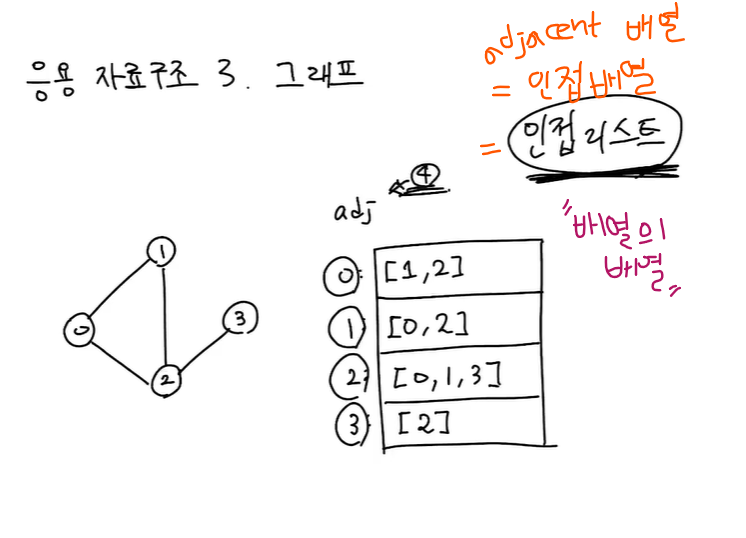 응용 자료구조 3. 그래프
adjacent 배열
= 인접배열
= 인접 리스트
④
adj
"배열의
배열"
0: [1,2]
1: [0,2]
2: [0,1,3]
3: [2]
1
0
3
2